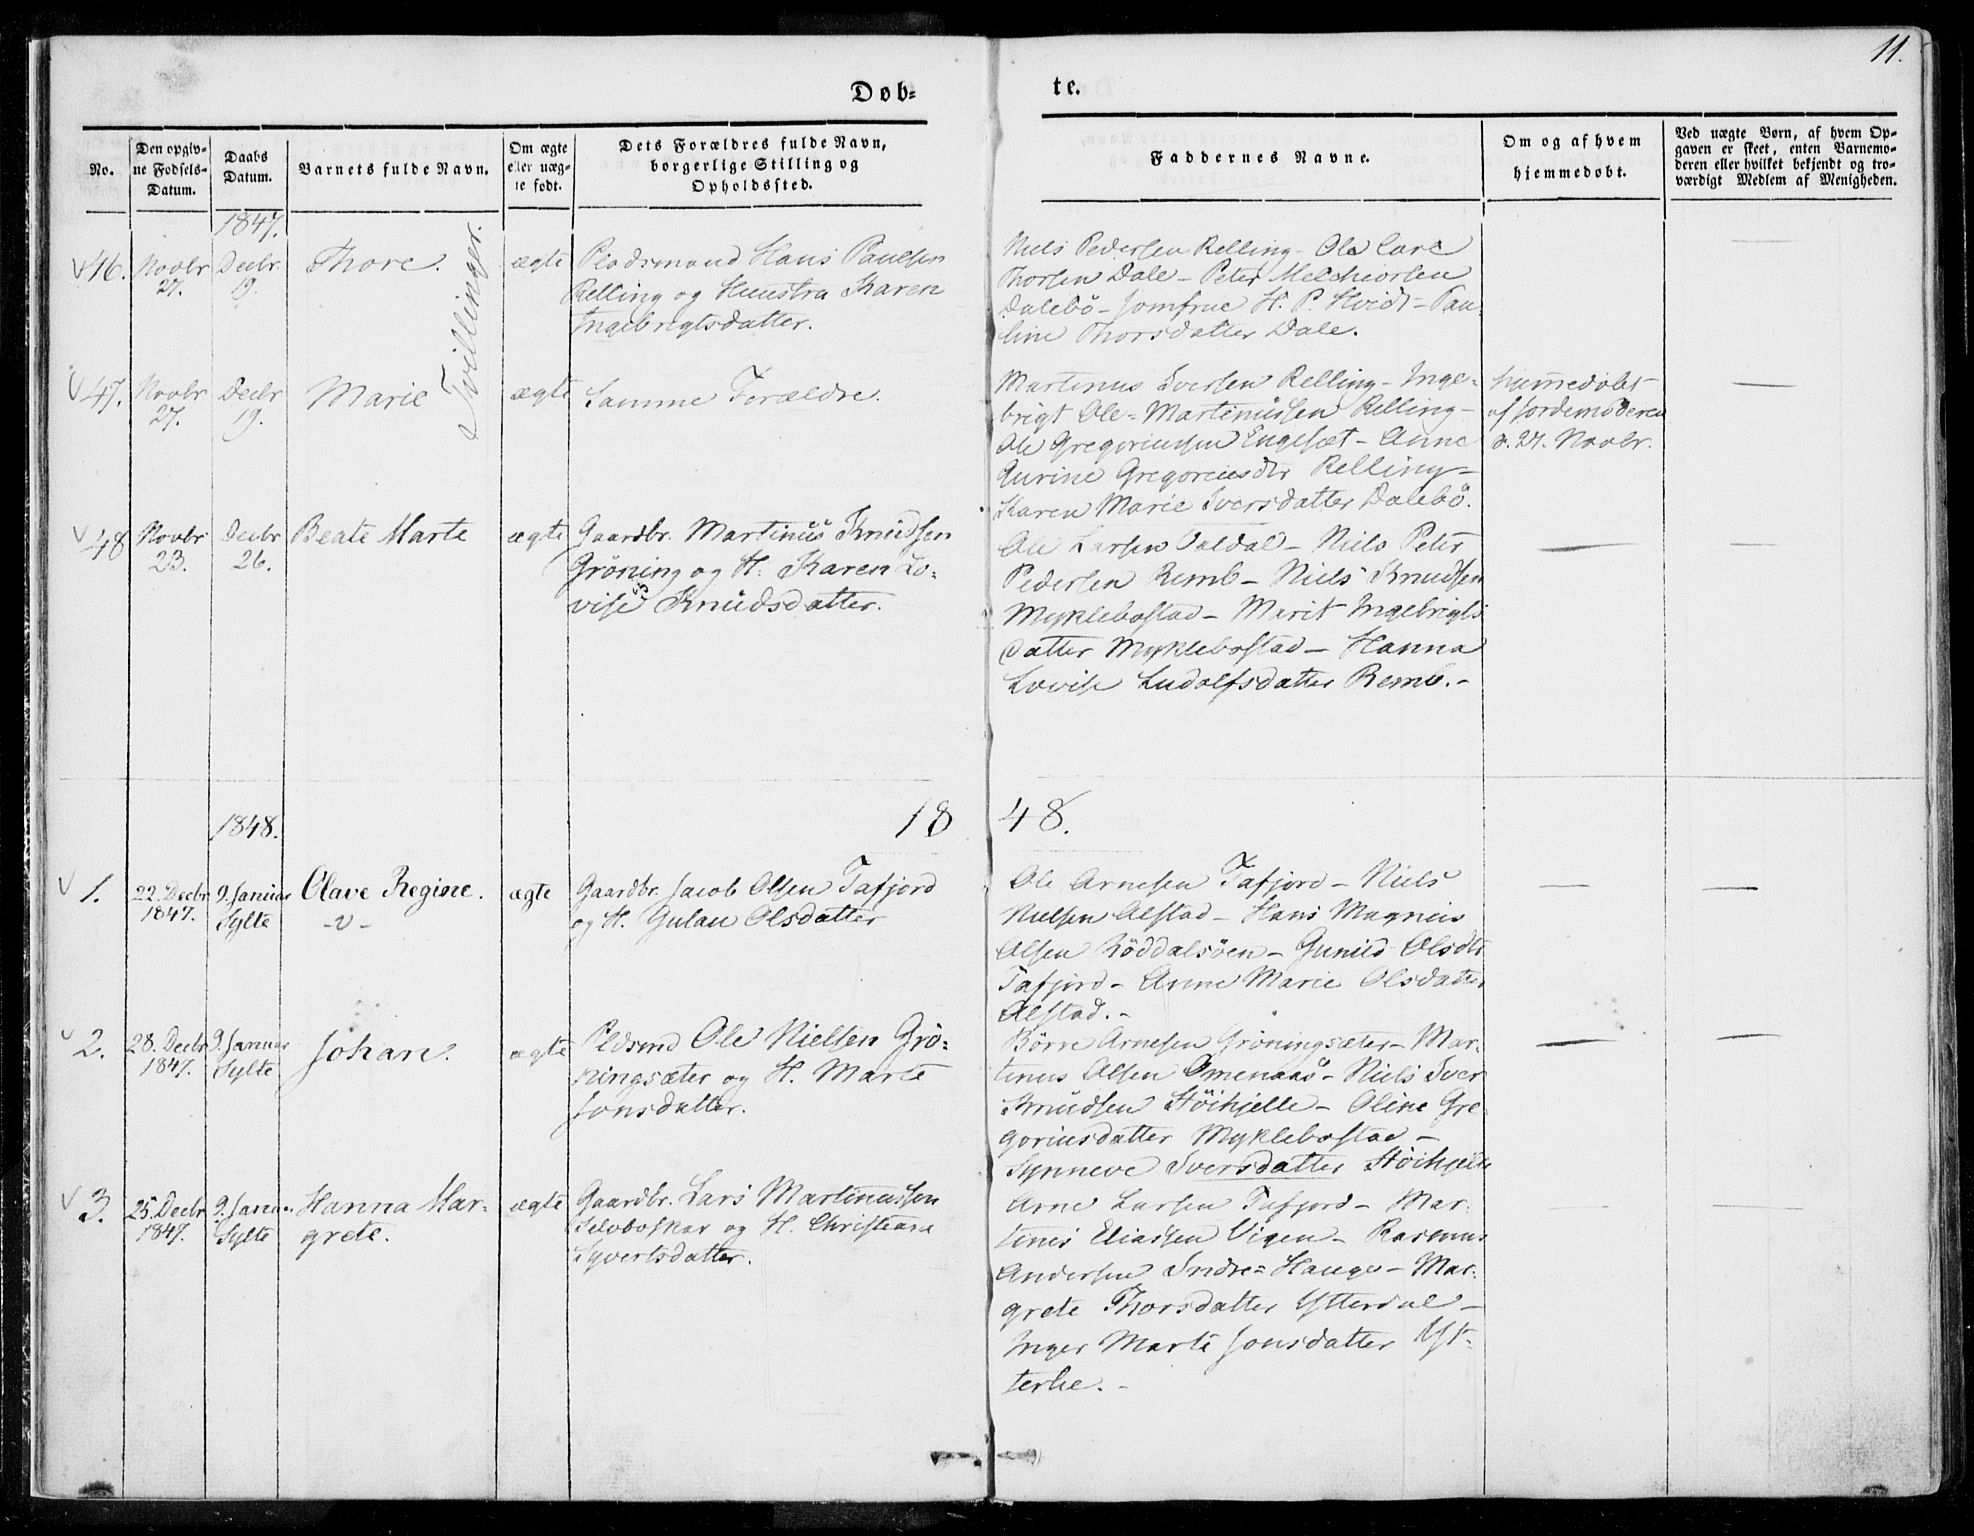 11.
Døb-
te.
No.
Den opgiv-
ne Fødsels-
Datum.
Daabs
Datum.
Barnets fulde Navn.
Om ægte
eller uæg-
te født.
Dets Forældres fulde Navn,
borgerlige Stilling og
Opholdssted.
Faddernes Navne.
Om og af hvem
hjemmedøbt.
Ved uægte Børn, af hvem Op-
gaven er skeet, enten Barnemo-
deren eller hvilket bekjendt og tro-
værdigt Medlem af Menigheden.
1847.
46.
Novbr
27.
Decbr
19.
Thore.
Tvillinger.
ægte
Pladsmand Hans Paulsen
Relling og Huustru Karen
Ingebrigtsdatter.
Niels Pedersen Relling - Ole Carl
Thorsen Dale - Peter Melchiorsen
Dalebö - Jomfrue H. P. Hvidt - Pau-
line Thorsdatter Dale.
47.
Novbr
27.
Decbr
19.
Marie
ægte
Samme Forældre.
Martinus Iversen Relling - Inge-
brigt Ole-Martinussen Relling -
Ole Gregoriussen Engeset - Anne
Gurine Gregoriusdtr Relling -
Karen Marie Iversdatter Dalebö.
hjemmedøbt
af Jordemoderen
d. 27. Novbr.
48
Novbr
23.
Decbr
26.
Beate Marte
ægte
Gaardbr. Martinus Knudsen
Gröning og H. Karen Lo-
vise Knudsdatter.
Ole Larsen Valdal - Niels Peter
Pedersen Remb - Niels Knudsen
Myklebostad - Marit Ingebrigts
datter Myklebostad - Hanna
Lovise Ludolfsdatter Remb. -
1848.
18
48.
1.
22. Decbr
1847.
9. Januar
Sylte
Olave Regine.
- v -
ægte
Gaardbr. Jacob Olsen Tafjord
og H. Gulau Olsdatter
Ole Arnesen Tafjord - Niels
Nielsen Alstad - Hans Magnus
Olsen Röddalsöen - Gunild Olsdtr
Tafjord - Anne Marie Olsdatter
Alstad. -
2.
28. Decbr
1847.
9. Januar
Sylte
Johan.
ægte
Pldsmd Ole Nielsen Grö-
ningsæter og H. Marte
Jonsdatter.
Börre Arnesen Gröningsæter - Mar-
tinus Olsen Omenaas - Niels Iver
Knudsen Stöihjelle - Oline Gre
goriusdatter Myklebostad -
Synneve Iversdatter Stöihjelle
3.
25. Decbr
1847.
9. Januar
Sylte
Hanna Mar-
grete.
ægte
Gaardbr. Lars Martinussen
Selboskar og H. Christiane
Syvertsdatter.
Arne Larsen Tafjord - Mar-
tinus Eliassen Vigen - Rasmus
Andersen Indre-Hauge - Mar-
grete Thorsdatter Ytterdal -
Inger Marte Jonsdatter Yt-
terlie. -